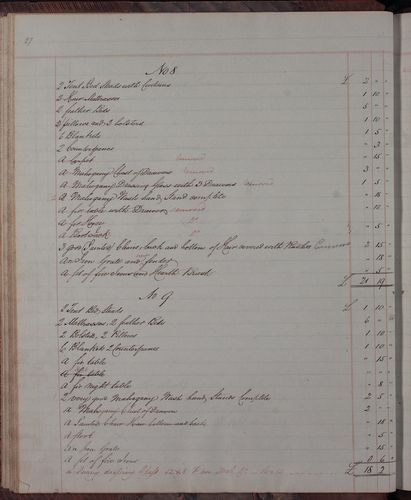 27
No 8
2 Tent Bed Steads with Curtains £ 2 " "
2 Hair Mattrasses 1 10 "
2 feather Beds 5 " "
2 pillows and 2 bolsters 1 10 "
6 Blankets 1 5 "
2 Counterpanes " 15 "
A Carpet removed " 15 "
A Mahogany Chest of Drawers removed 3 " "
A Mahogany Dressing Glass with 3 Drawers removed 1 5 "
A Mahogany Wash hand Stand complete " 15 "
A fir table with Drawer removed " 10 "
A fir Horse
A Bootjack Do
3 good Painted Chairs, back and bottom of Hair covered with 2 15 "
An Iron Grate and fender " 18 "
A set of fire Irons and Hearth Brush " 5 "
£ 21 19 "
No 9
2 Tent Bed Steads £ 1 10 "
2 Mattrasses, 2 feather Beds 6 " "
2 Bolsters, 2 Pillows 1 10 "
6 Blankets 2 Counterpanes 1 10 "
A fir table " 15 "
A fir table
A fir night table " 8 "
2 very good Mahogany Wash hand Stands Complete 2 5 "
A Mahogany Chest of Drawers 2 " "
A Painted Chair Hair bottom and back " 18 "
An Iron Grate " 15 "
A set of fire Irons " 6 "
£ 18 2 "